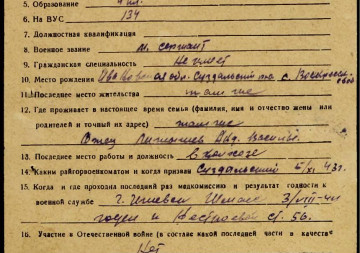 5. Образование 4 кл.
6. На ВУС 134
7. Должностная квалификация
8. Военное звание м. сержант
9. Гражданская специальность Не имеет
10. Место рождения Ивановская обл. Суздальский с. Воскресен
11. Последнее место жительства там же
12. Где проживает в настоящее время семья (фамилия, имя и отчество жены или
родителей и точный их адрес) там же
Отец
13. Последнее место работы и должность в колхозе
14. Каким райгорвоенкоматом и когда призван Суздальский 5/XI 43 г.
15. Когда и где проходил последний раз медкомиссию и результат годности к
военной службе г. 3/VIII-44
годен к ст. 56.
16. Участие в Отечественной войне (в составе какой последней части и в качестве
Нет